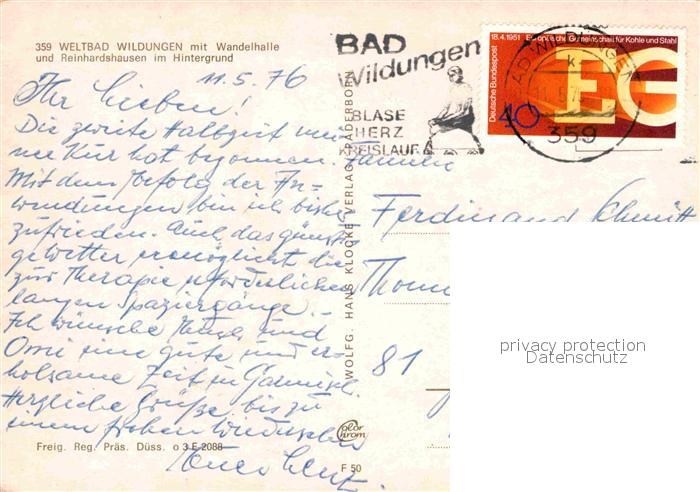 359 WELTBAD WILDUNGEN mit Wandelhalle
und Reinhardshausen im Hintergrund
11.5.76
Ihr Lieben!
Die zweite Halbzeit mei-
ner Kur hat begonnen.
Mit dem Erfolg der An-
wendungen bin ich bisher
zufrieden. Auch das günstige
wetter ermöglicht die
zur Therapie erforderlichen
langen Spaziergänge.
Ich wünsche und
Omi eine gute und er-
holsame Zeit in Garmisch.
Herzliche Grüße bis zu
einem frohen Wiedersehen
Euer
Freig. Reg. Präs. Düss. o 3 E 2088
WOLFG. HANS KLOCKE VERLAG, PADERBORN
color
chrom
F 50
BAD
Wildungen
BLASE
HERZ
KREISLAUF
18.4.1951 Europäische Gemeinschaft für Kohle und Stahl
Deutsche Bundespost
40
EG
BAD WILDUNGEN
359
Familien
Ferdinand Schmitt
81
privacy protection
Datenschutz